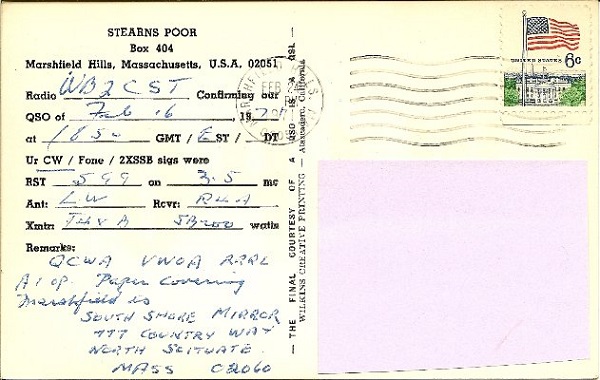 STEARNS POOR
Box 404
Marshfield Hills, Massachusetts, U.S.A. 02051
Radio WB2CST Confirming our
QSO of Feb 16, 19
at 1850 GMT / EST / DT
Ur CW / Fone / 2XSSB sigs were
RST 599 on 3.5 mc
Ant: LW Rcvr:
Xmtr: watts
Remarks:
QCWA VWOA ARRL
A1 op. Paper Covering
Marshfield is
SOUTH SHORE MIRROR
777 COUNTRY WAY
NORTH SCITUATE
MASS 02060
— THE FINAL COURTESY OF A QSO IS A QSL —
WILKINS CREATIVE PRINTING — Atascadero, California
FEB
UNITED STATES 6c